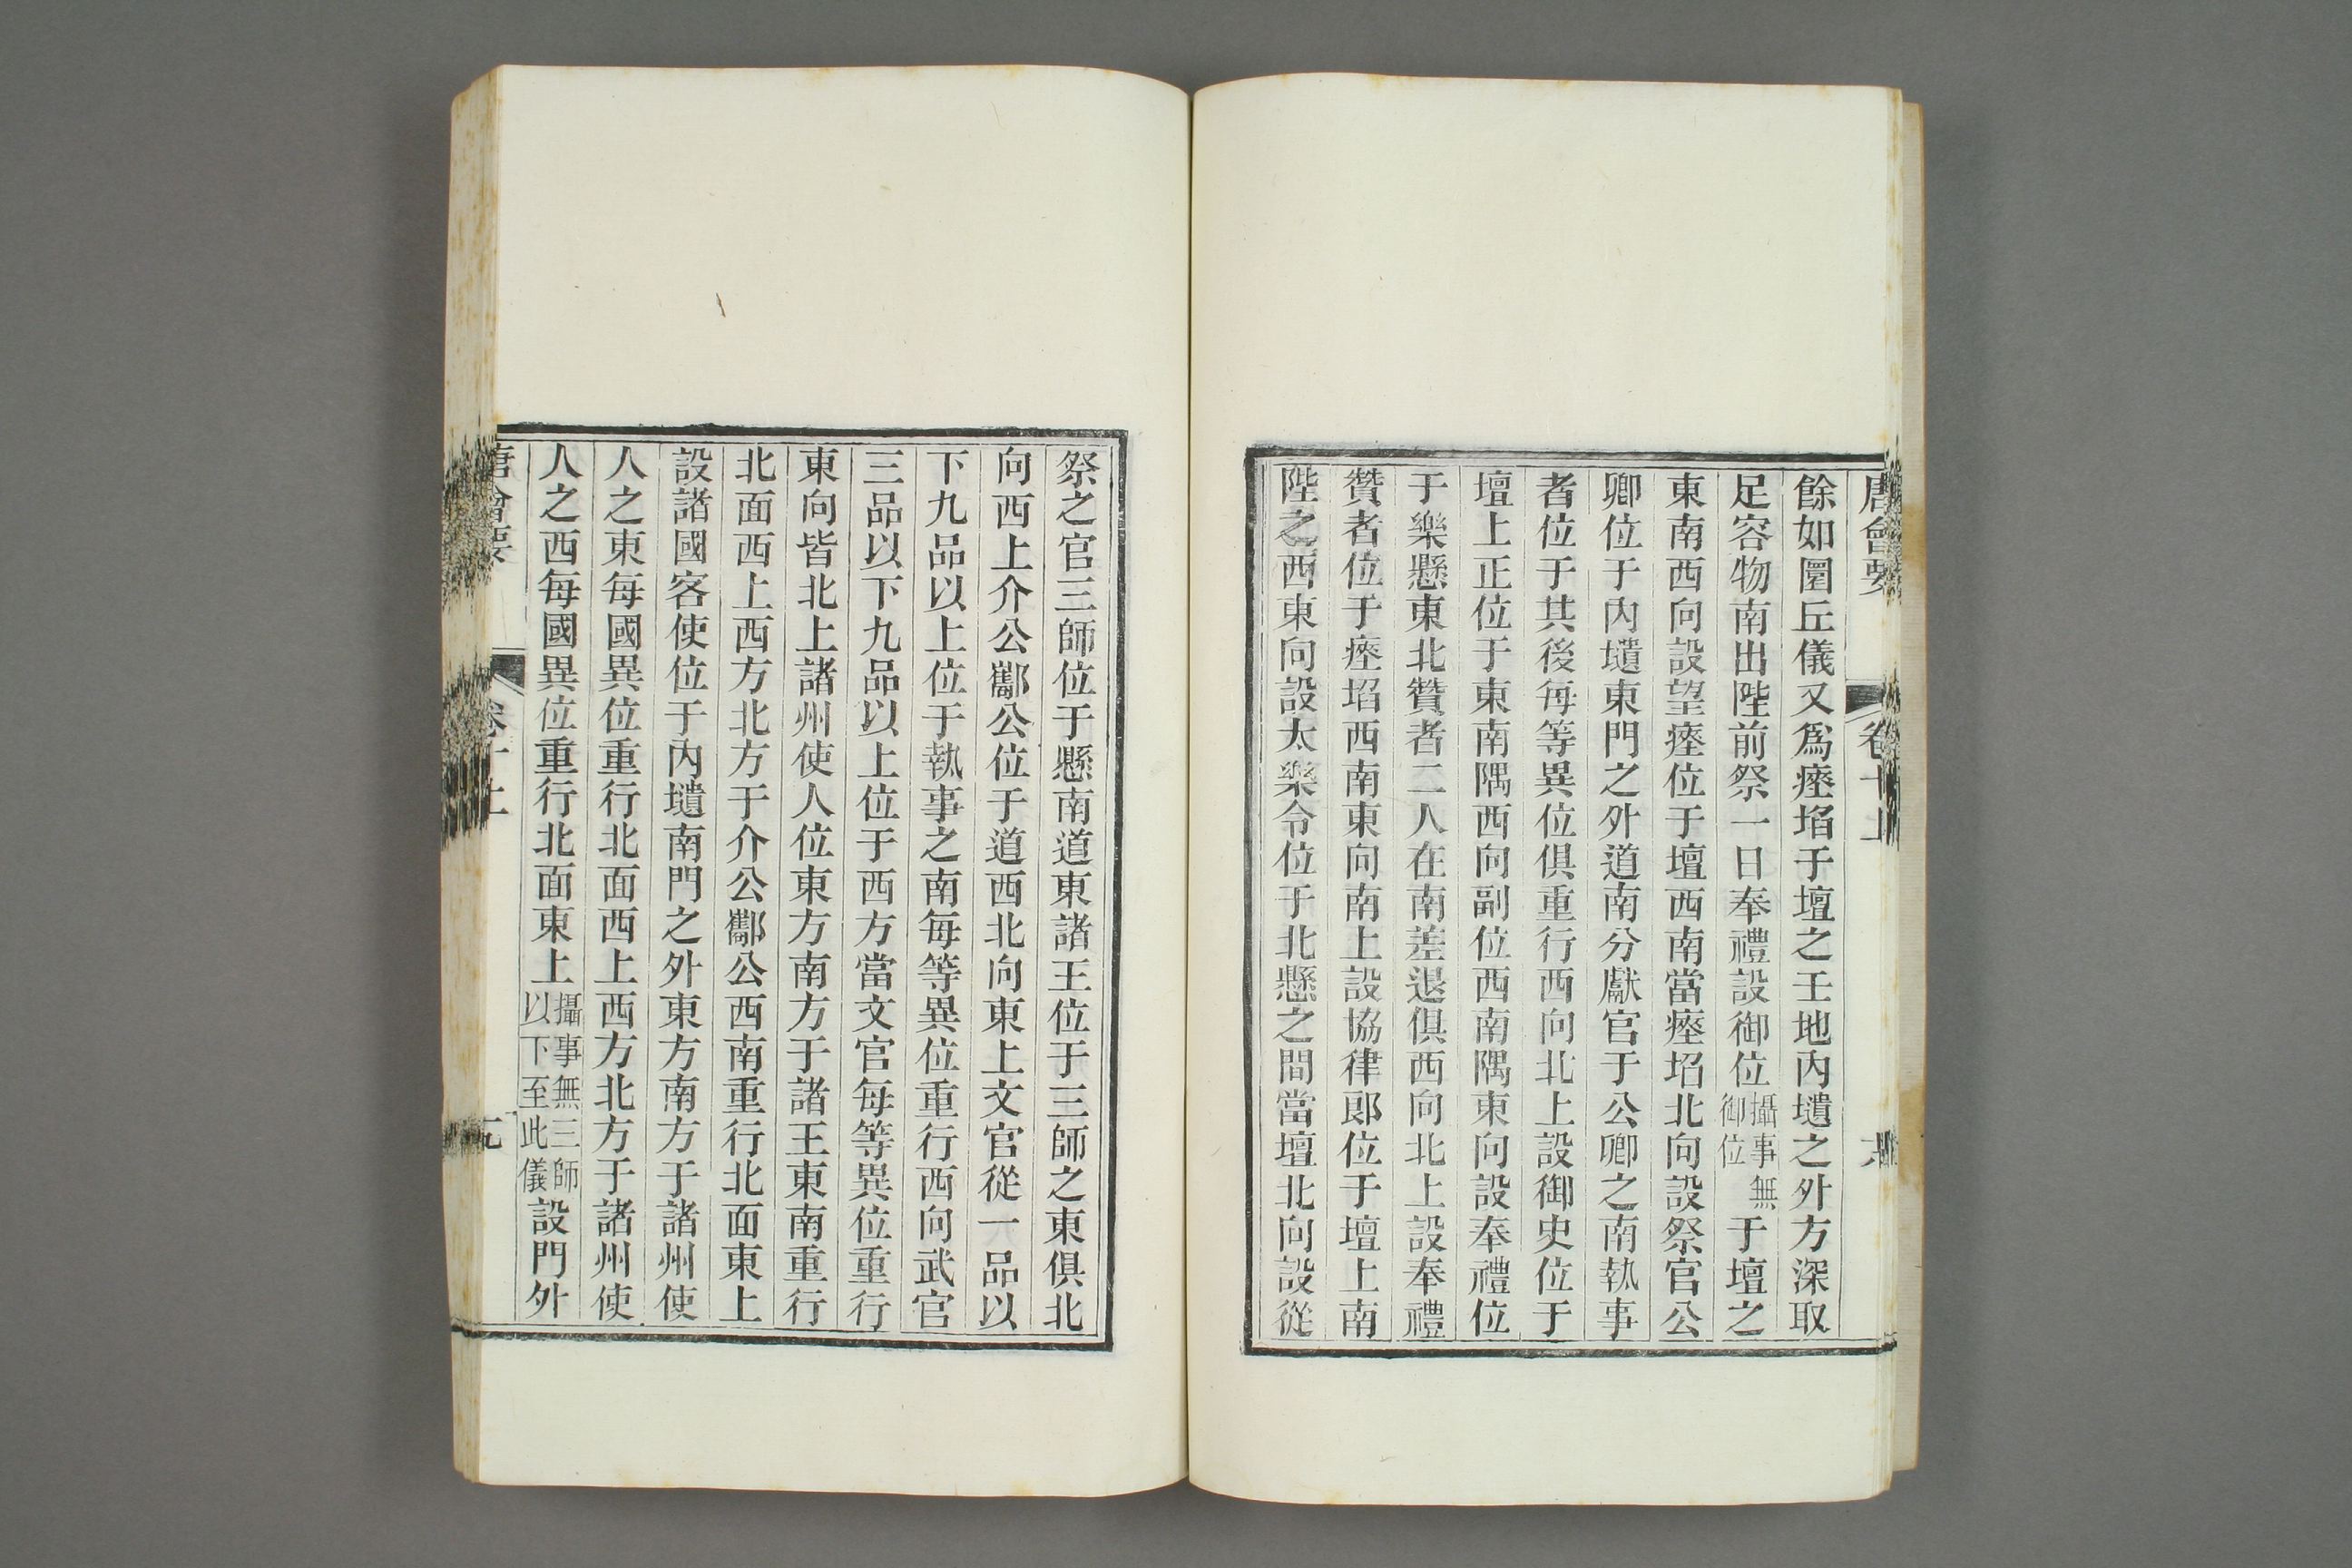 唐會要 卷十上
餘如圜丘儀又爲瘞埳于壇之壬地內壝之外方深取
足容物南出陛前祭一日奉禮設御位攝事無御位于壇之
東南西向設望瘞位于壇西南當瘞埳北向設祭官公
卿位于內壝東門之外道南分獻官于公卿之南執事
者位于其後每等異位俱重行西向北上設御史位于
壇上正位于東南隅西向副位西南隅東向設奉禮位
于樂懸東北贊者二人在南差退俱西向北上設奉禮
贊者位于瘞埳西南東向南上設協律郎位于壇上南
陛之西東向設太樂令位于北懸之間當壇北向設從
祭之官三師位于懸南道東諸王位于三師之東俱北
向西上介公酅公位于道西北向東上文官從一品以
下九品以上位于執事之南每等異位重行西向武官
三品以下九品以上位于西方當文官每等異位重行
東向皆北上諸州使人位東方南方于諸王東南重行
北面西上西方北方于介公酅公西南重行北面東上
設諸國客使位于內壝南門之外東方南方于諸州使
人之東每國異位重行北面西上西方北方于諸州使
人之西每國異位重行北面東上攝事無三師以下至此儀設門外
唐會要 卷十上